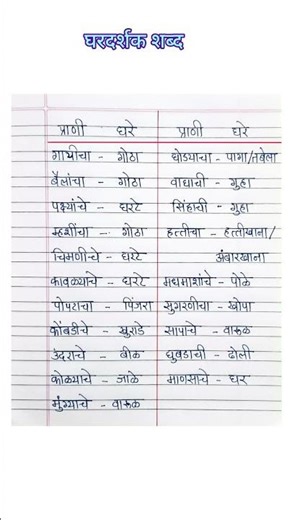 घरदर्शक शब्द
प्राणी घरे प्राणी घरे
गायीचा - गोठा घोड्याचा - पागा/तबेला
बैलांचा - गोठा वाघाची - गुहा
पक्ष्यांचे - घरटे सिंहाची - गुहा
म्हशींचा - गोठा हत्तीचा - हत्तीखाना/
चिमणीचे - घरटे अंबारखाना
कावळ्याचे - घरटे मधमाशांचे - पोळे
पोपटाचा - पिंजरा सुगरणीचा - खोपा
कोंबडीचे - खुराडे सापाचे - वारूळ
उंदराचे - बीळ घुबडाची - ढोली
कोळ्याचे - जाळे माणसाचे - घर
मुंग्याचे - वारूळ